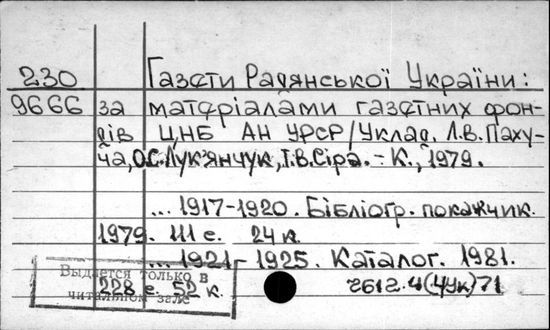 230 Газети Радянської України:
9666 за матеріалами газетних фон-
дів ЦНБ АН УРСР/Уклад. Л.В.Паху-
ча, О.С.Лук'янчук, Т.В.Сіра. - К., 1979.
... 1917-1920. Бібліогр. покажчик.
1979. 111 с. 24 к.
... 1921-1925. Каталог. 1981.
Выдается только в
228 с. 52 к. Ч612.4(4Ук)71
читальном зале